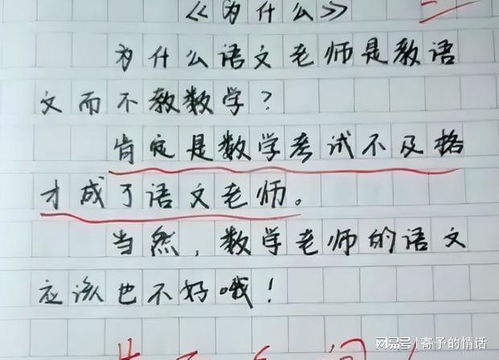 《为什么》
为什么语文老师是教语
文而不教数学？
肯定是数学考试不及格
才成了语文老师。
当然，数学老师的语文
应该也不好哦！
网易号 | 高子的情话